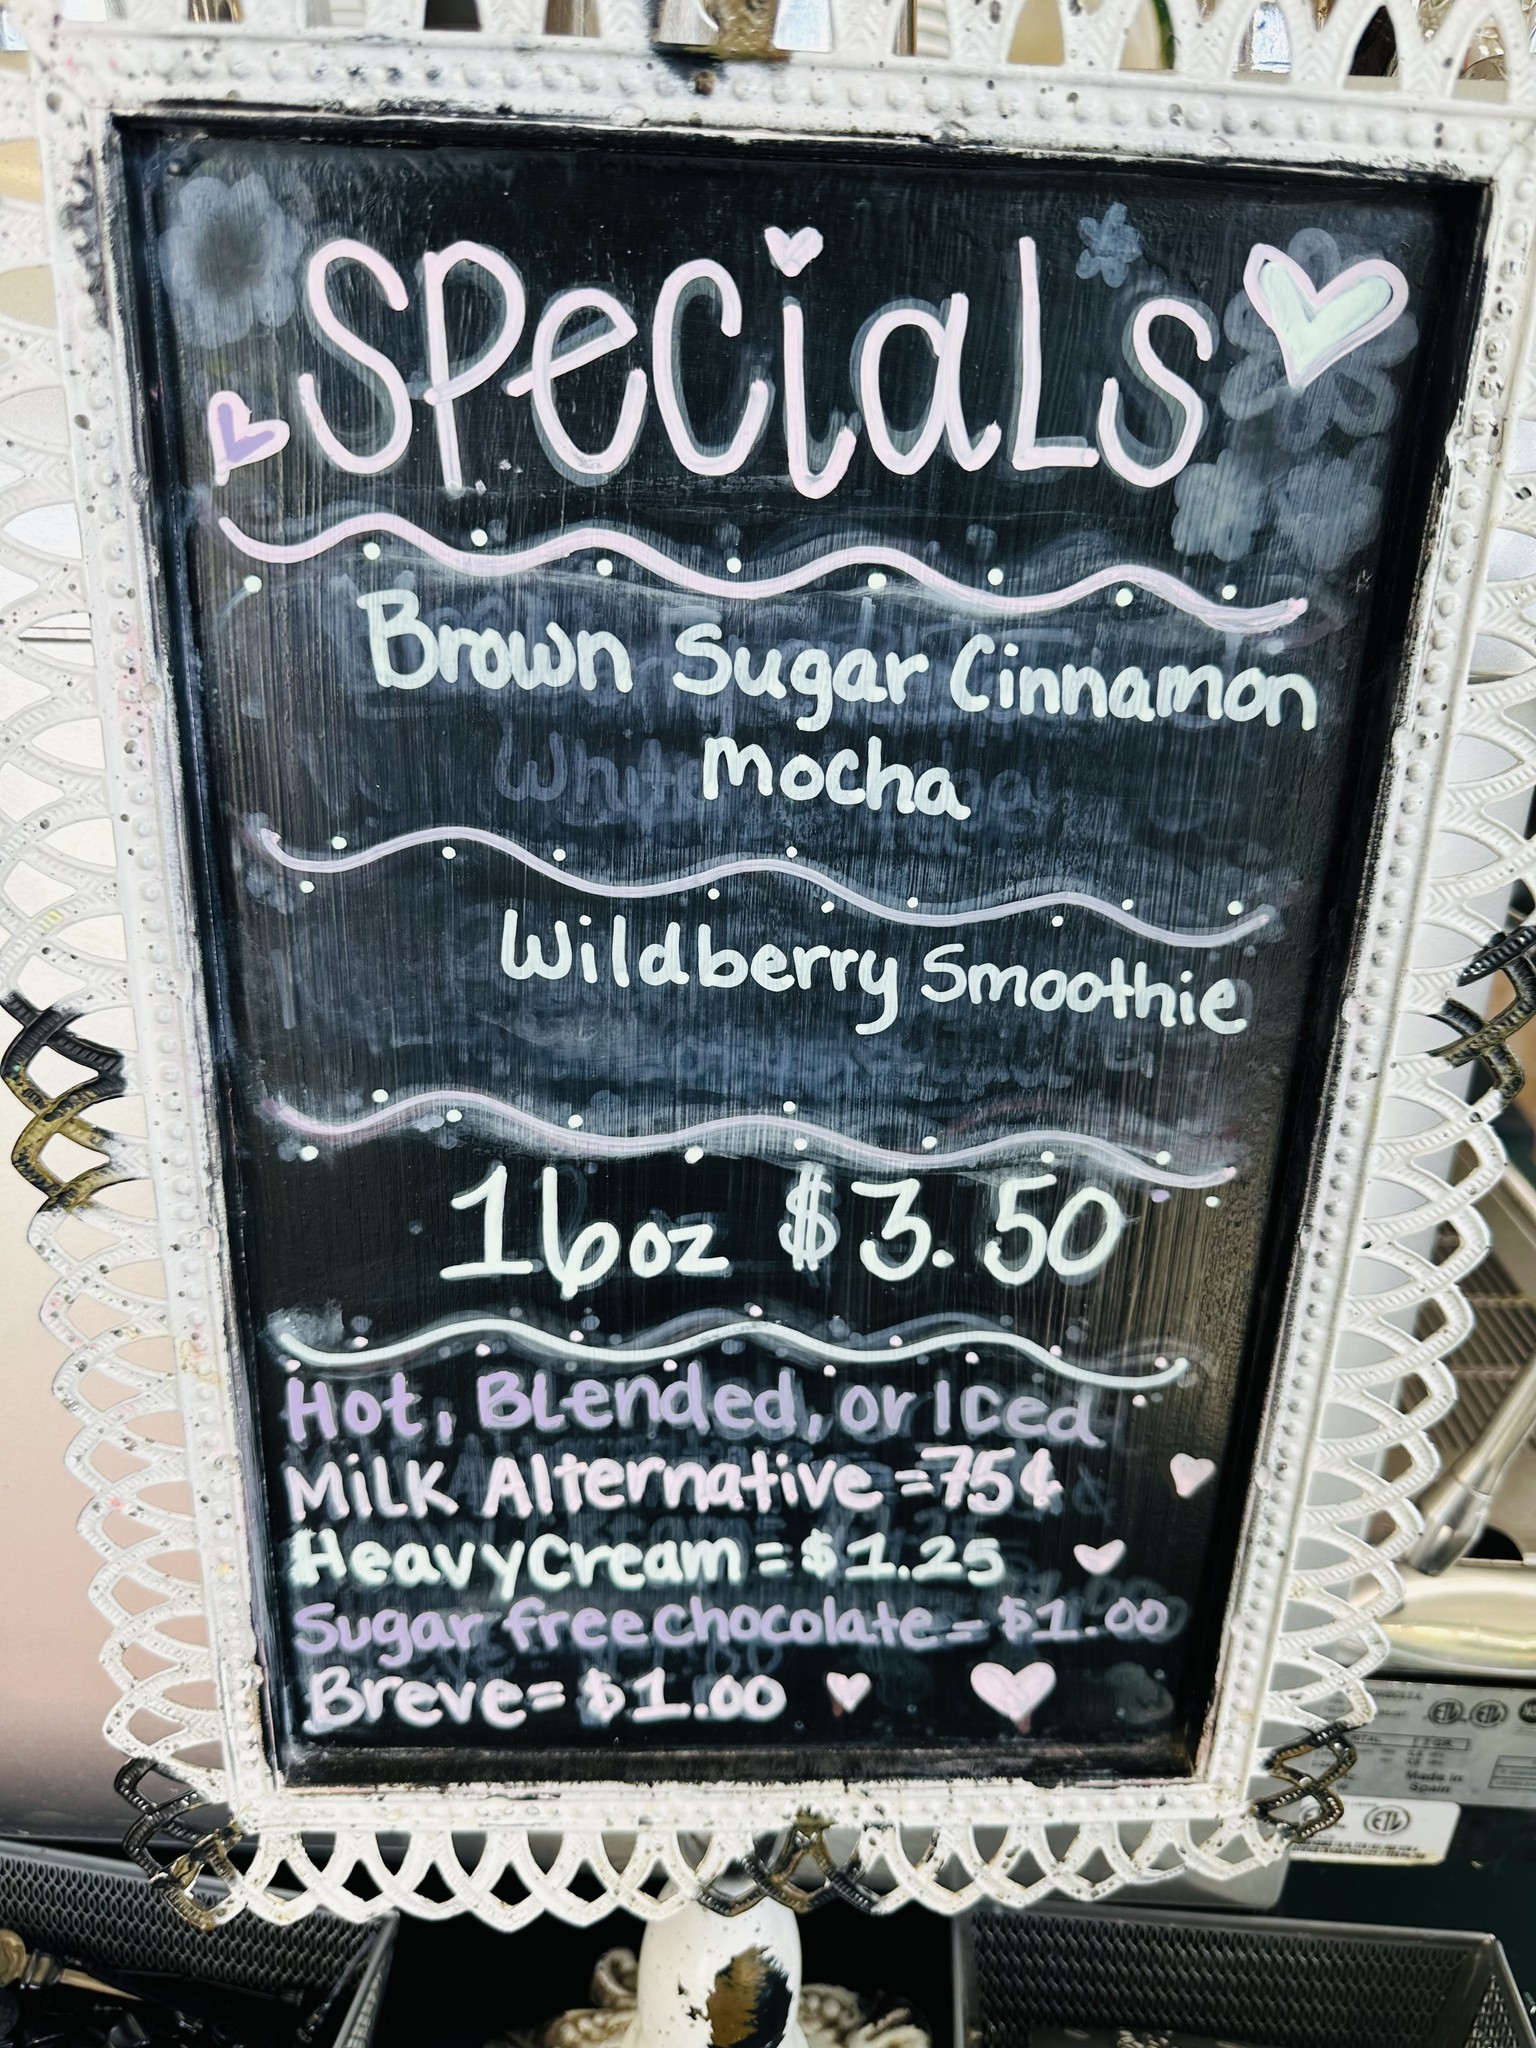 Specials
Brown Sugar Cinnamon
Mocha
Wildberry Smoothie
16oz $3.50
Hot, Blended, or Iced
Milk Alternative = 75¢
Heavy Cream = $1.25
Sugar free chocolate = $1.00
Breve = $1.00
Made in
Spain